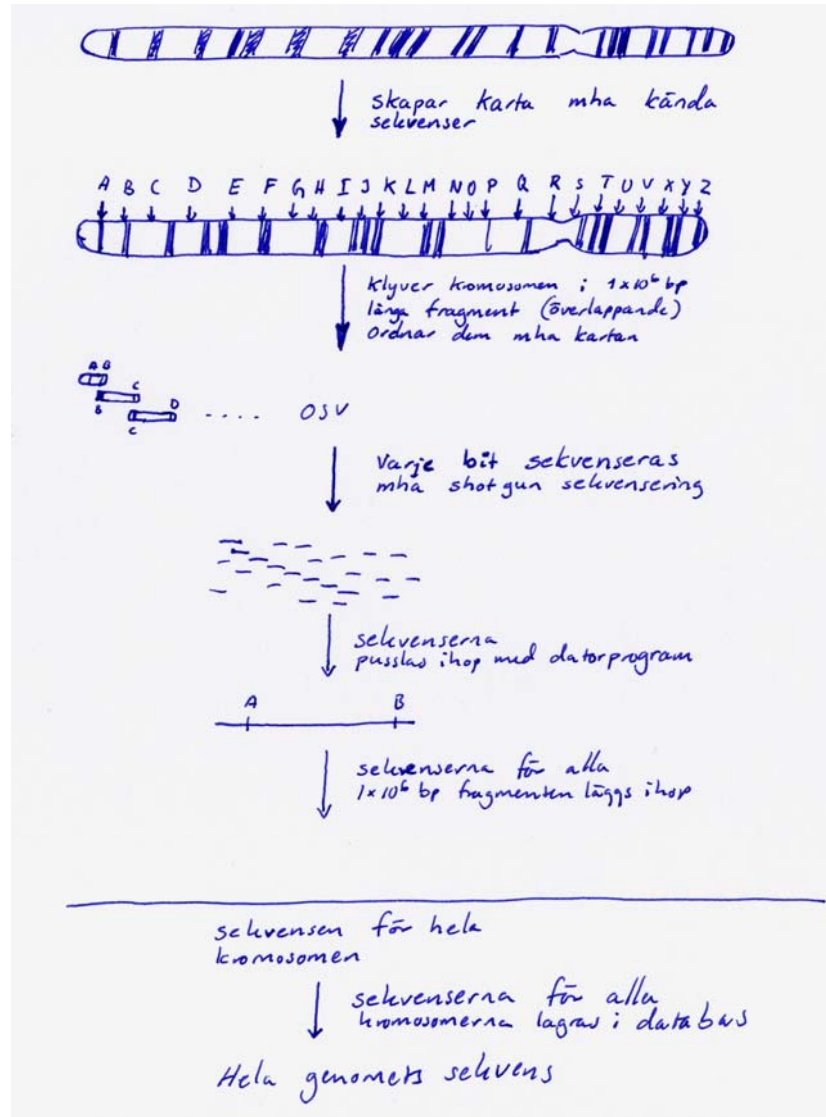 skapar karta mha kända
sekvenser
A B C D E F G H I J K L M N O P Q R S T U V X Y Z
klyver kromosomen i 1x10⁶ bp
långa fragment (överlappande)
ordnar dem mha kartan
A B
B C
C D
.... OSV
Varje bit sekvenseras
mha shotgun sekvensering
sekvenserna
pusslas ihop med datorprogram
A B
sekvenserna för alla
1x10⁶ bp fragmenten läggs ihop
sekvensen för hela
kromosomen
sekvenserna för alla
kromosomerna lagras i databas
Hela genomets sekvens